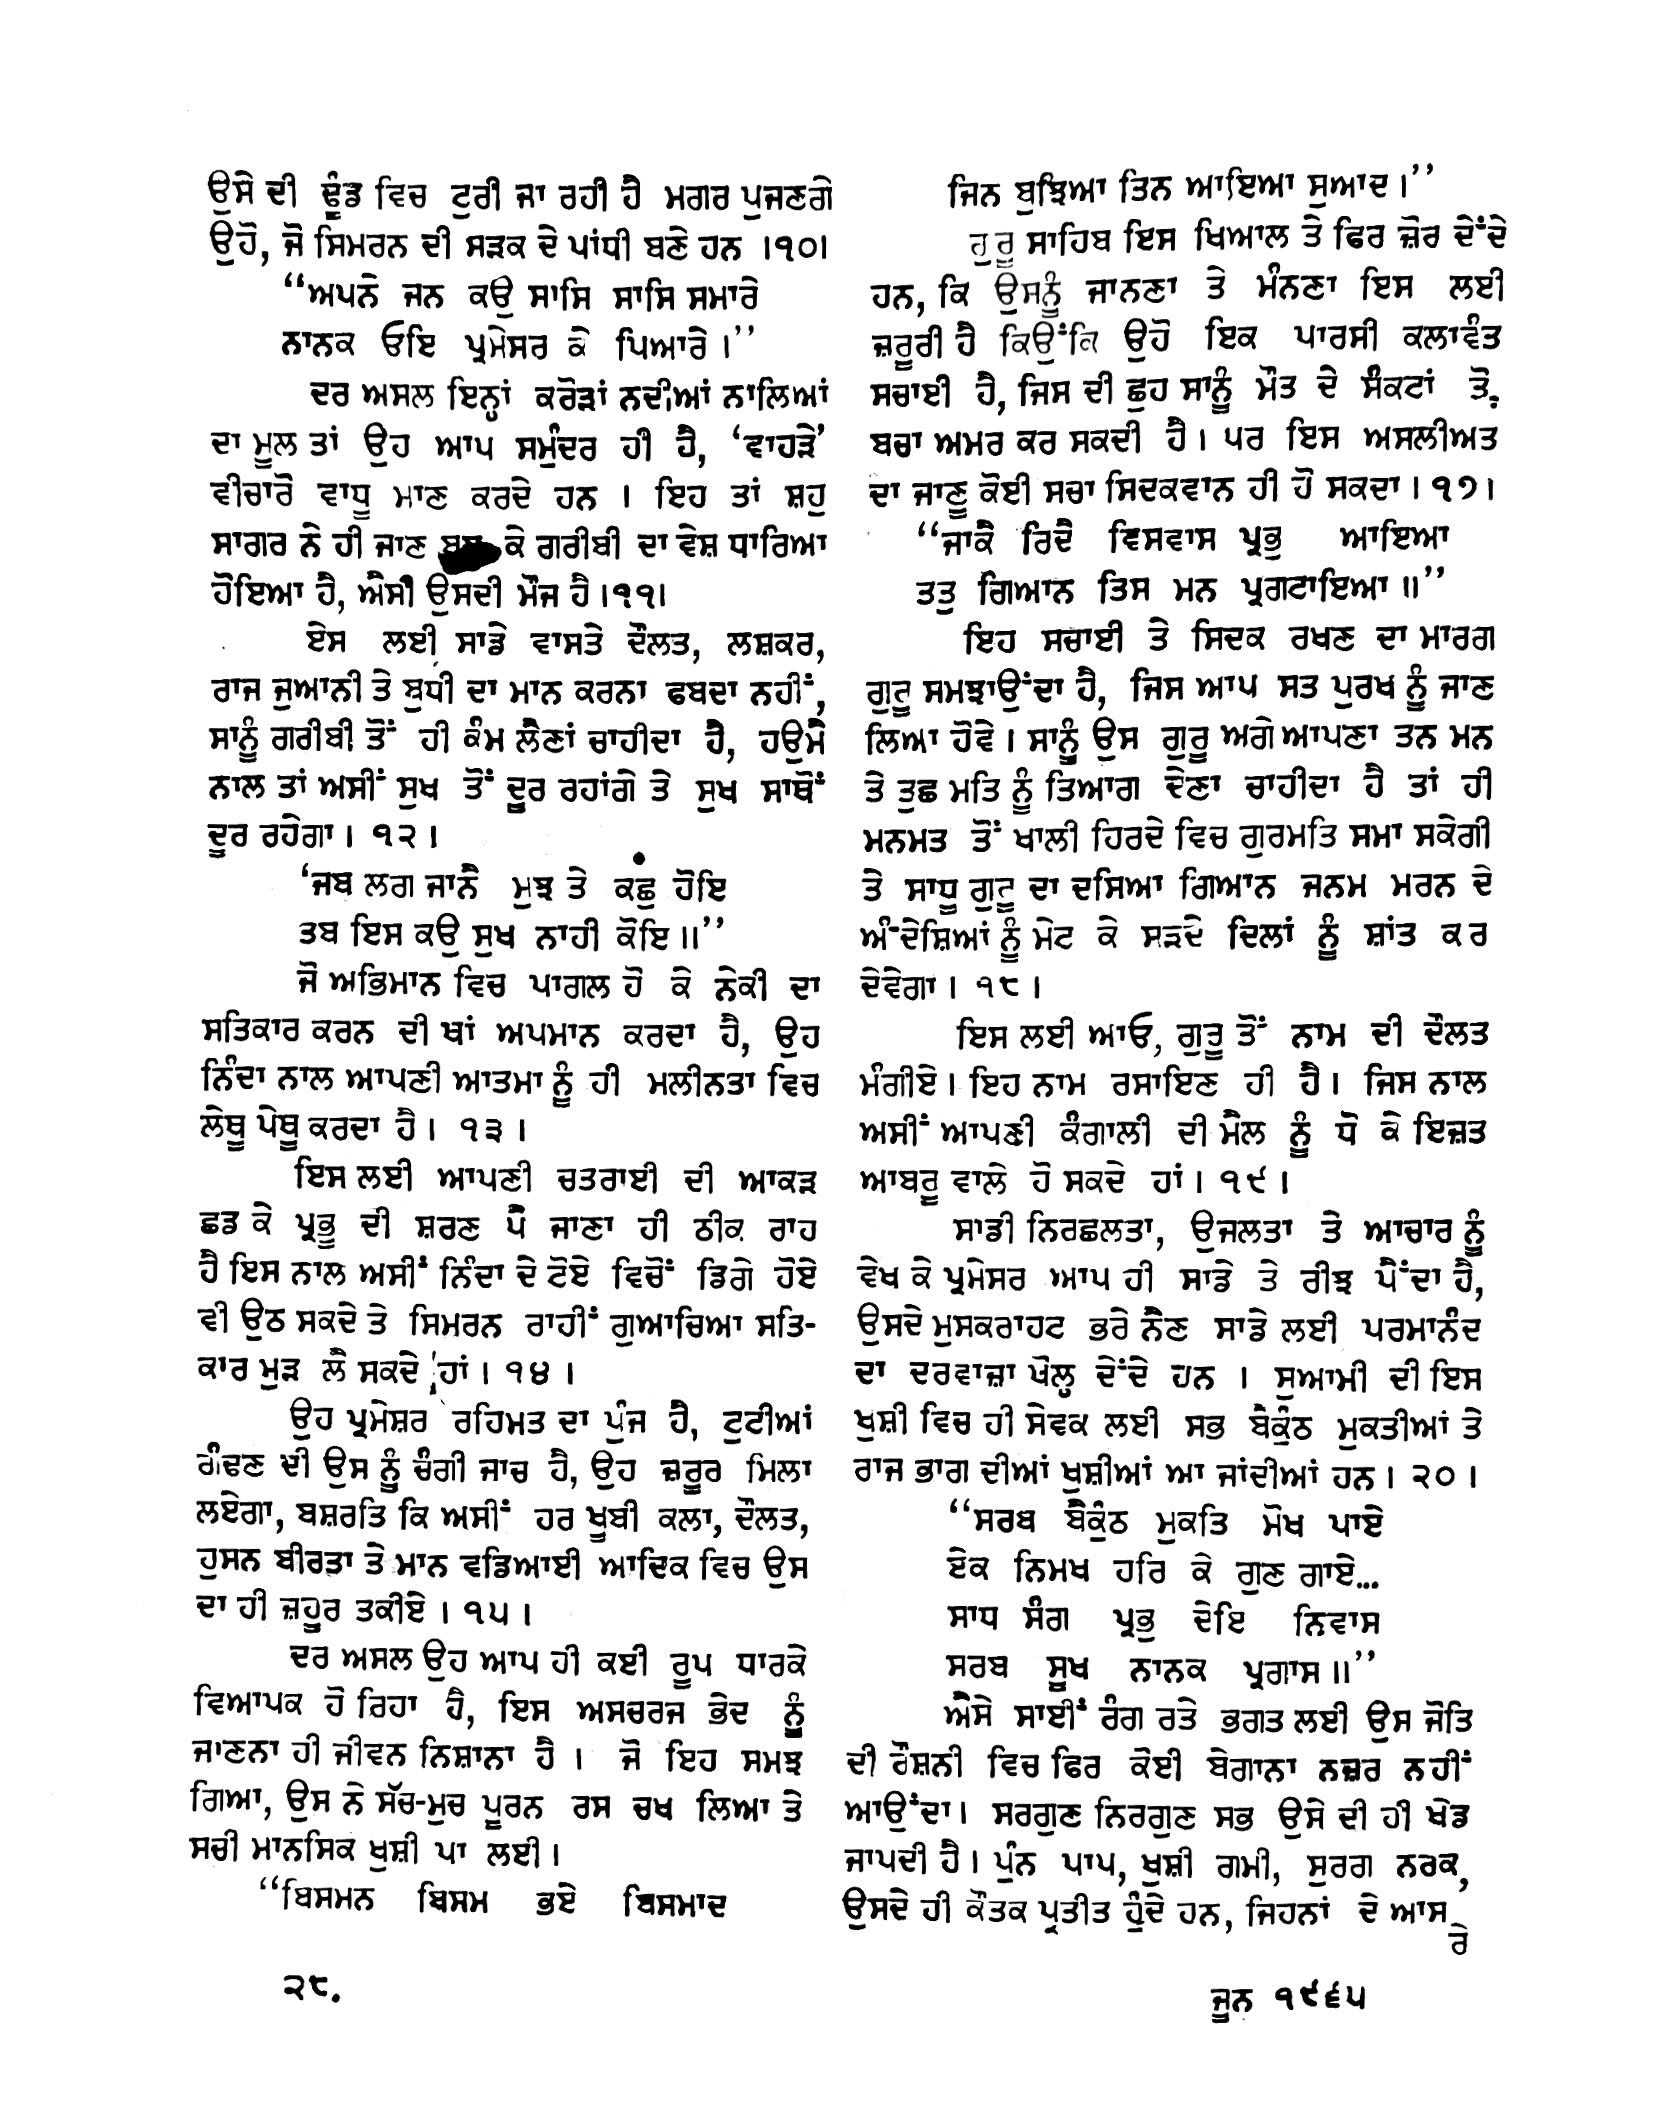 ਉਸੇ ਦੀ ਢੂੰਡ ਵਿਚ ਟੁਰੀ ਜਾ ਰਹੀ ਹੈ ਮਗਰ ਪੁਜਣਗੇ
ਉਹੋ, ਜੋ ਸਿਮਰਨ ਦੀ ਸੜਕ ਦੇ ਪਾਂਧੀ ਬਣੇ ਹਨ ।੧੦।
“ਅਪਨੇ ਜਨ ਕਉ ਸਾਸਿ ਸਾਸਿ ਸਮਾਰੇ
ਨਾਨਕ ਓਇ ਪ੍ਰਮੇਸਰ ਕੇ ਪਿਆਰੇ ।”
ਦਰ ਅਸਲ ਇਨ੍ਹਾਂ ਕਰੋੜਾਂ ਨਦੀਆਂ ਨਾਲਿਆਂ
ਦਾ ਮੂਲ ਤਾਂ ਉਹ ਆਪ ਸਮੁੰਦਰ ਹੀ ਹੈ, ‘ਵਾਹੜੇ’
ਵੀਚਾਰੇ ਵਾਧੂ ਮਾਣ ਕਰਦੇ ਹਨ । ਇਹ ਤਾਂ ਸ਼ਹੁ
ਸਾਗਰ ਨੇ ਹੀ ਜਾਣ ਕੇ ਗਰੀਬੀ ਦਾ ਵੇਸ਼ ਧਾਰਿਆ
ਹੋਇਆ ਹੈ, ਐਸੀ ਉਸਦੀ ਮੌਜ ਹੈ ।੧੧।
ਏਸ ਲਈ ਸਾਡੇ ਵਾਸਤੇ ਦੌਲਤ, ਲਸ਼ਕਰ,
ਰਾਜ ਜੁਆਨੀ ਤੇ ਬੁਧੀ ਦਾ ਮਾਨ ਕਰਨਾ ਫਬਦਾ ਨਹੀਂ,
ਸਾਨੂੰ ਗਰੀਬੀ ਤੋਂ ਹੀ ਕੰਮ ਲੈਣਾਂ ਚਾਹੀਦਾ ਹੈ, ਹਉਮੈ
ਨਾਲ ਤਾਂ ਅਸੀਂ ਸੁਖ ਤੋਂ ਦੂਰ ਰਹਾਂਗੇ ਤੇ ਸੁਖ ਸਾਥੋਂ
ਦੂਰ ਰਹੇਗਾ । ੧੨ ।
‘ਜਬ ਲਗ ਜਾਨੈ ਮੁਝ ਤੇ ਕਛੁ ਹੋਇ
ਤਬ ਇਸ ਕਉ ਸੁਖ ਨਾਹੀ ਕੋਇ ॥”
ਜੋ ਅਭਿਮਾਨ ਵਿਚ ਪਾਗਲ ਹੋ ਕੇ ਨੇਕੀ ਦਾ
ਸਤਿਕਾਰ ਕਰਨ ਦੀ ਥਾਂ ਅਪਮਾਨ ਕਰਦਾ ਹੈ, ਉਹ
ਨਿੰਦਾ ਨਾਲ ਆਪਣੀ ਆਤਮਾ ਨੂੰ ਹੀ ਮਲੀਨਤਾ ਵਿਚ
ਲੇਥੂ ਪੇਥੂ ਕਰਦਾ ਹੈ । ੧੩ ।
ਇਸ ਲਈ ਆਪਣੀ ਚਤਰਾਈ ਦੀ ਆਕੜ
ਛਡ ਕੇ ਪ੍ਰਭੂ ਦੀ ਸ਼ਰਣ ਪੈ ਜਾਣਾ ਹੀ ਠੀਕ ਰਾਹ
ਹੈ ਇਸ ਨਾਲ ਅਸੀਂ ਨਿੰਦਾ ਦੇ ਟੋਏ ਵਿਚੋਂ ਡਿਗੇ ਹੋਏ
ਵੀ ਉਠ ਸਕਦੇ ਤੇ ਸਿਮਰਨ ਰਾਹੀਂ ਗੁਆਚਿਆ ਸਤਿ-
ਕਾਰ ਮੁੜ ਲੈ ਸਕਦੇ ਹਾਂ । ੧੪ ।
ਉਹ ਪ੍ਰਮੇਸ਼ਰ ਰਹਿਮਤ ਦਾ ਪੁੰਜ ਹੈ, ਟੁਟੀਆਂ
ਗੰਢਣ ਦੀ ਉਸ ਨੂੰ ਚੰਗੀ ਜਾਚ ਹੈ, ਉਹ ਜ਼ਰੂਰ ਮਿਲਾ
ਲਏਗਾ, ਬਸ਼ਰਤਿ ਕਿ ਅਸੀਂ ਹਰ ਖੂਬੀ ਕਲਾ, ਦੌਲਤ,
ਹੁਸਨ ਬੀਰਤਾ ਤੇ ਮਾਨ ਵਡਿਆਈ ਆਦਿਕ ਵਿਚ ਉਸ
ਦਾ ਹੀ ਜ਼ਹੂਰ ਤਕੀਏ । ੧੫ ।
ਦਰ ਅਸਲ ਉਹ ਆਪ ਹੀ ਕਈ ਰੂਪ ਧਾਰਕੇ
ਵਿਆਪਕ ਹੋ ਰਿਹਾ ਹੈ, ਇਸ ਅਸਚਰਜ ਭੇਦ ਨੂੰ
ਜਾਣਨਾ ਹੀ ਜੀਵਨ ਨਿਸ਼ਾਨਾ ਹੈ । ਜੋ ਇਹ ਸਮਝ
ਗਿਆ, ਉਸ ਨੇ ਸੱਚ-ਮੁਚ ਪੂਰਨ ਰਸ ਚਖ ਲਿਆ ਤੇ
ਸਚੀ ਮਾਨਸਿਕ ਖੁਸ਼ੀ ਪਾ ਲਈ ।
“ਬਿਸਮਨ ਬਿਸਮ ਭਏ ਬਿਸਮਾਦ
੨੮.
ਜਿਨ ਬੁਝਿਆ ਤਿਨ ਆਇਆ ਸੁਆਦ ।”
ਗੁਰੂ ਸਾਹਿਬ ਇਸ ਖਿਆਲ ਤੇ ਫਿਰ ਜ਼ੋਰ ਦੇਂਦੇ
ਹਨ, ਕਿ ਉਸਨੂੰ ਜਾਨਣਾ ਤੇ ਮੰਨਣਾ ਇਸ ਲਈ
ਜ਼ਰੂਰੀ ਹੈ ਕਿਉਂਕਿ ਉਹੋ ਇਕ ਪਾਰਸੀ ਕਲਾਵੰਤ
ਸਚਾਈ ਹੈ, ਜਿਸ ਦੀ ਛੁਹ ਸਾਨੂੰ ਮੌਤ ਦੇ ਸੰਕਟਾਂ ਤੋਂ
ਬਚਾ ਅਮਰ ਕਰ ਸਕਦੀ ਹੈ । ਪਰ ਇਸ ਅਸਲੀਅਤ
ਦਾ ਜਾਣੂ ਕੋਈ ਸਚਾ ਸਿਦਕਵਾਨ ਹੀ ਹੋ ਸਕਦਾ । ੧੭।
“ਜਾਕੈ ਰਿਦੈ ਵਿਸਵਾਸ ਪ੍ਰਭੁ ਆਇਆ
ਤਤੁ ਗਿਆਨ ਤਿਸ ਮਨ ਪ੍ਰਗਟਾਇਆ ॥”
ਇਹ ਸਚਾਈ ਤੇ ਸਿਦਕ ਰਖਣ ਦਾ ਮਾਰਗ
ਗੁਰੂ ਸਮਝਾਉਂਦਾ ਹੈ, ਜਿਸ ਆਪ ਸਤ ਪੁਰਖ ਨੂੰ ਜਾਣ
ਲਿਆ ਹੋਵੇ । ਸਾਨੂੰ ਉਸ ਗੁਰੂ ਅਗੇ ਆਪਣਾ ਤਨ ਮਨ
ਤੇ ਤੁਛ ਮਤਿ ਨੂੰ ਤਿਆਗ ਦੇਣਾ ਚਾਹੀਦਾ ਹੈ ਤਾਂ ਹੀ
ਮਨਮਤ ਤੋਂ ਖਾਲੀ ਹਿਰਦੇ ਵਿਚ ਗੁਰਮਤਿ ਸਮਾ ਸਕੇਗੀ
ਤੇ ਸਾਧੂ ਗੁਰੂ ਦਾ ਦਸਿਆ ਗਿਆਨ ਜਨਮ ਮਰਨ ਦੇ
ਅੰਦੇਸ਼ਿਆਂ ਨੂੰ ਮੇਟ ਕੇ ਸੜਦੇ ਦਿਲਾਂ ਨੂੰ ਸ਼ਾਂਤ ਕਰ
ਦੇਵੇਗਾ । ੧੮ ।
ਇਸ ਲਈ ਆਓ, ਗੁਰੂ ਤੋਂ ਨਾਮ ਦੀ ਦੌਲਤ
ਮੰਗੀਏ । ਇਹ ਨਾਮ ਰਸਾਇਣ ਹੀ ਹੈ । ਜਿਸ ਨਾਲ
ਅਸੀਂ ਆਪਣੀ ਕੰਗਾਲੀ ਦੀ ਮੈਲ ਨੂੰ ਧੋ ਕੇ ਇਜ਼ਤ
ਆਬਰੂ ਵਾਲੇ ਹੋ ਸਕਦੇ ਹਾਂ । ੧੯ ।
ਸਾਡੀ ਨਿਰਛਲਤਾ, ਉਜਲਤਾ ਤੇ ਆਚਾਰ ਨੂੰ
ਵੇਖ ਕੇ ਪ੍ਰਮੇਸਰ ਆਪ ਹੀ ਸਾਡੇ ਤੇ ਰੀਝ ਪੈਂਦਾ ਹੈ,
ਉਸਦੇ ਮੁਸਕਰਾਹਟ ਭਰੇ ਨੈਣ ਸਾਡੇ ਲਈ ਪਰਮਾਨੰਦ
ਦਾ ਦਰਵਾਜ਼ਾ ਖੋਲ੍ਹ ਦੇਂਦੇ ਹਨ । ਸੁਆਮੀ ਦੀ ਇਸ
ਖੁਸ਼ੀ ਵਿਚ ਹੀ ਸੇਵਕ ਲਈ ਸਭ ਬੈਕੁੰਠ ਮੁਕਤੀਆਂ ਤੇ
ਰਾਜ ਭਾਗ ਦੀਆਂ ਖੁਸ਼ੀਆਂ ਆ ਜਾਂਦੀਆਂ ਹਨ । ੨੦ ।
“ਸਰਬ ਬੈਕੁੰਠ ਮੁਕਤਿ ਮੋਖ ਪਾਏ
ਏਕ ਨਿਮਖ ਹਰਿ ਕੇ ਗੁਣ ਗਾਏ...
ਸਾਧ ਸੰਗ ਪ੍ਰਭੁ ਦੇਇ ਨਿਵਾਸ
ਸਰਬ ਸੂਖ ਨਾਨਕ ਪ੍ਰਗਾਸ ॥”
ਐਸੇ ਸਾਈਂ ਰੰਗ ਰਤੇ ਭਗਤ ਲਈ ਉਸ ਜੋਤਿ
ਦੀ ਰੌਸ਼ਨੀ ਵਿਚ ਫਿਰ ਕੋਈ ਬੇਗਾਨਾ ਨਜ਼ਰ ਨਹੀਂ
ਆਉਂਦਾ । ਸਰਗੁਣ ਨਿਰਗੁਣ ਸਭ ਉਸੇ ਦੀ ਹੀ ਖੇਡ
ਜਾਪਦੀ ਹੈ । ਪੁੰਨ ਪਾਪ, ਖੁਸ਼ੀ ਗਮੀ, ਸੁਰਗ ਨਰਕ,
ਉਸਦੇ ਹੀ ਕੌਤਕ ਪ੍ਰਤੀਤ ਹੁੰਦੇ ਹਨ, ਜਿਹਨਾਂ ਦੇ ਆਸ
ਰੇ
ਜੂਨ ੧੯੬੫